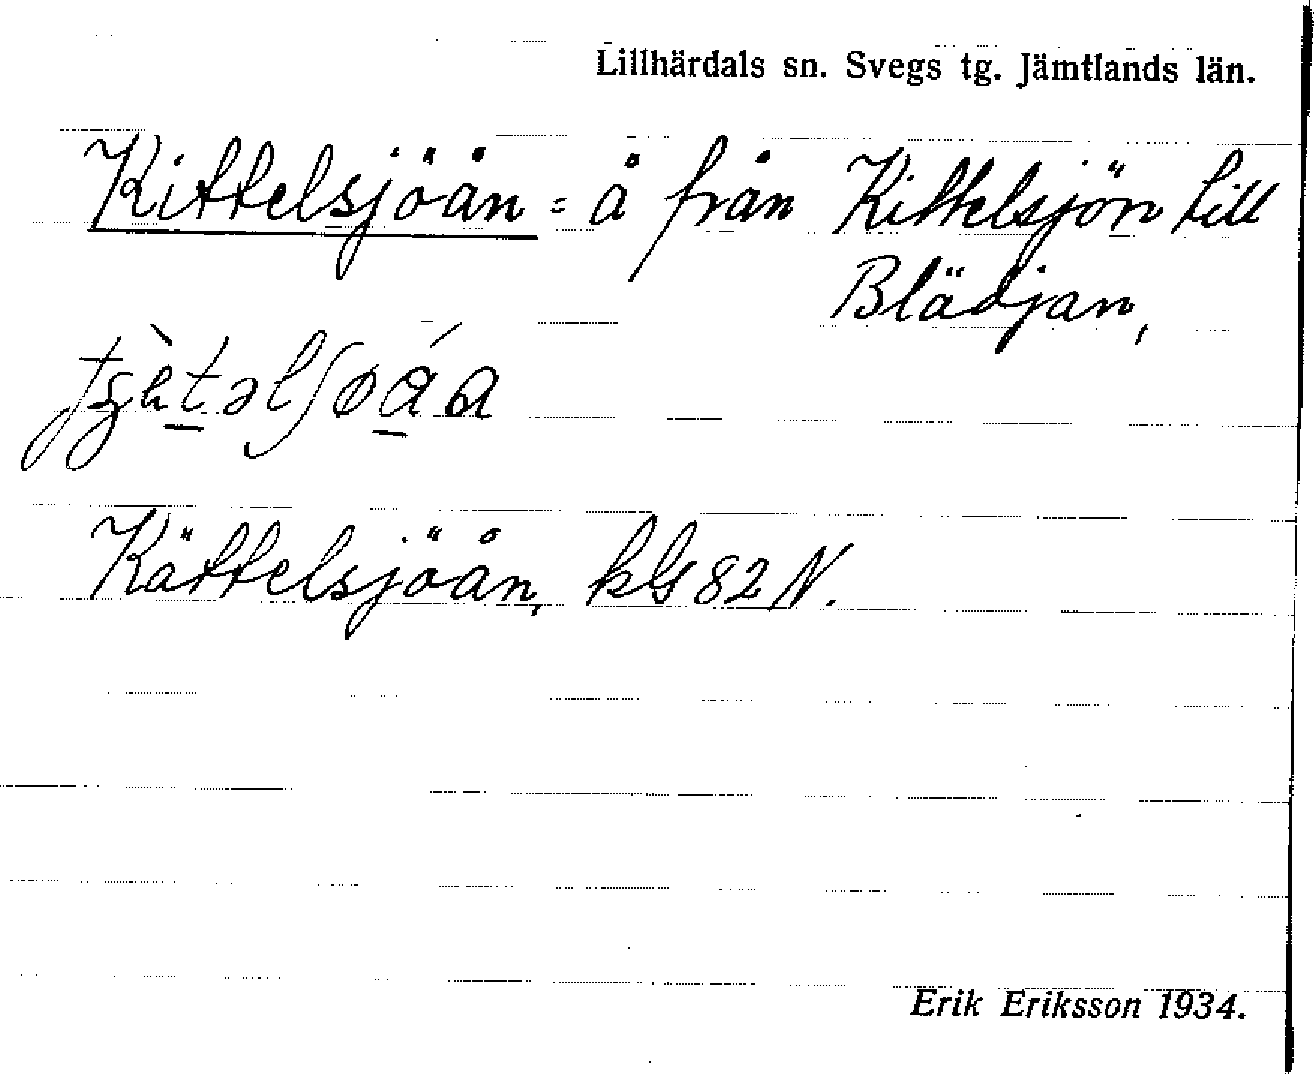 Lillhärdals sn. Svegs tg. Jämtlands län.
Kittelsjöån = å från Kittelsjön till
Blädjan,
Kättelsjöån, kG 82 N.
Erik Eriksson 1934.